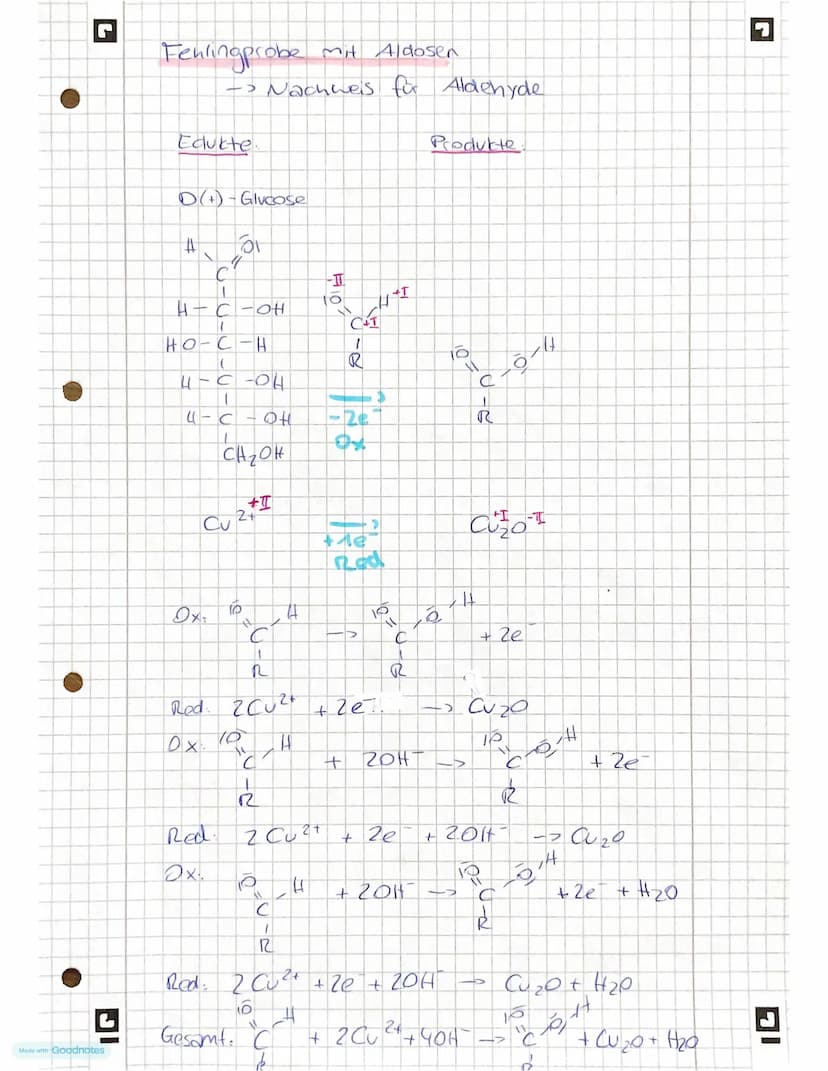 Fehlingprobe mit Aldosen
-> Nachweis für Aldehyde
Edukte. Produkte.
D(+)-Glucose
H O
C
H-C-OH
HO-C-H
H-C-OH
H-C-OH
CH2OH
-II
O H +I
C +I
R
-2e-
Ox
O O H
C
R
Cu2+ +II
+1e-
Red
+I -II
Cu2O
Ox: O H
C
R
-> O O H
C
R
+ 2e-
Red. 2Cu2+ + 2e- -> Cu2O
Ox. O H
C
R
+ 2OH- -> O O H
C
R
+ 2e-
Red. 2Cu2+ + 2e- + 2OH- -> Cu2O
Ox. O H
C
R
+ 2OH- -> O O H
C
R
+ 2e- + H2O
Red. 2Cu2+ + 2e- + 2OH- -> Cu2O + H2O
Gesamt. O H
C
R
+ 2Cu2+ + 4OH- -> O O H
C
R
+ Cu2O + H2O
Made with Goodnotes